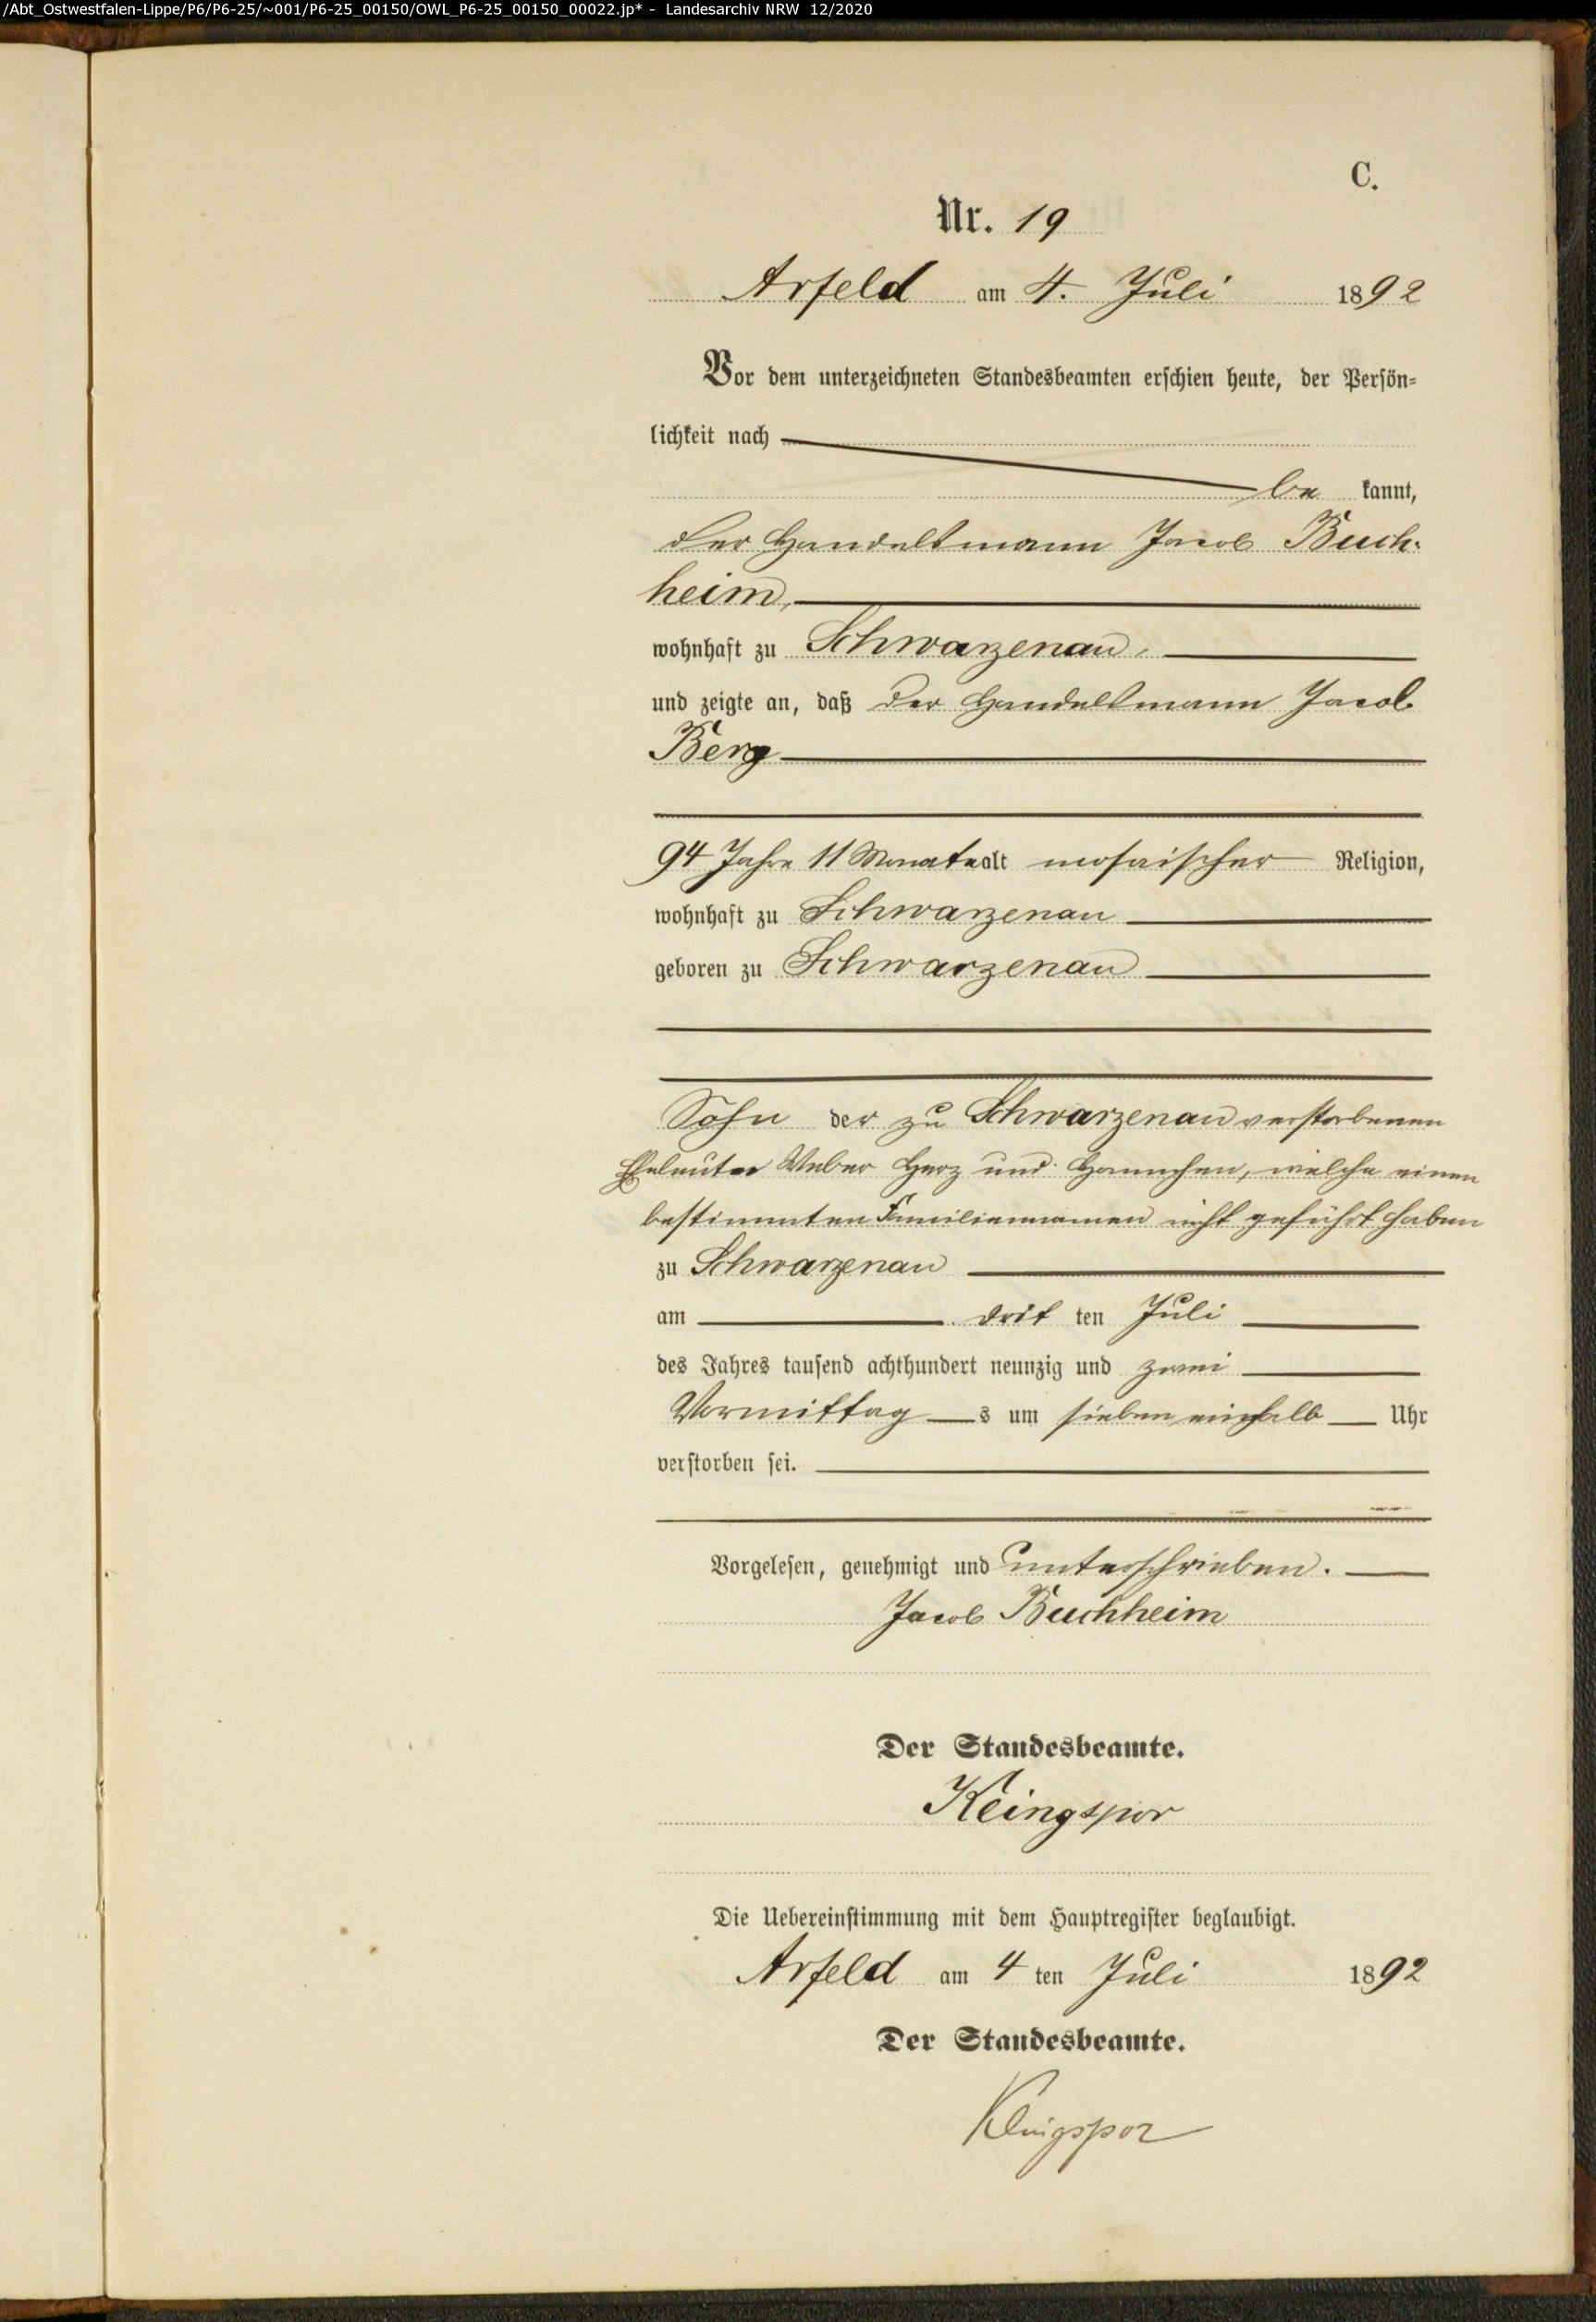 /Abt_Ostwestfalen-Lippe/P6/P6-25/~001/P6-25_00150/OWL_P6-25_00150_00022.jp* - Landesarchiv NRW 12/2020
C.
Nr. 19
Arfeld am 4. Juli 1892
Vor dem unterzeichneten Standesbeamten erschien heute, der Persön-
lichkeit nach
be kannt,
der Handelsmann Jacob Buch-
heim,
wohnhaft zu Schwarzenau,
und zeigte an, daß der Handelsmann Jacob
Berg
94 Jahre 11 Monate alt mosaischer Religion,
wohnhaft zu Schwarzenau
geboren zu Schwarzenau
Sohn der zu Schwarzenau verstorbenen
Eheleute Herz und Hannchen, welche einen
bestimmten Familiennamen nicht geführt haben
zu Schwarzenau
am drit ten Juli
des Jahres tausend achthundert neunzig und zwei
Vormittag s um sieben einhalb Uhr
verstorben sei.
Vorgelesen, genehmigt und unterschrieben.
Jacob Buchheim
Der Standesbeamte.
Klingspor
Die Uebereinstimmung mit dem Hauptregister beglaubigt.
Arfeld am 4 ten Juli 1892
Der Standesbeamte.
Klingspor